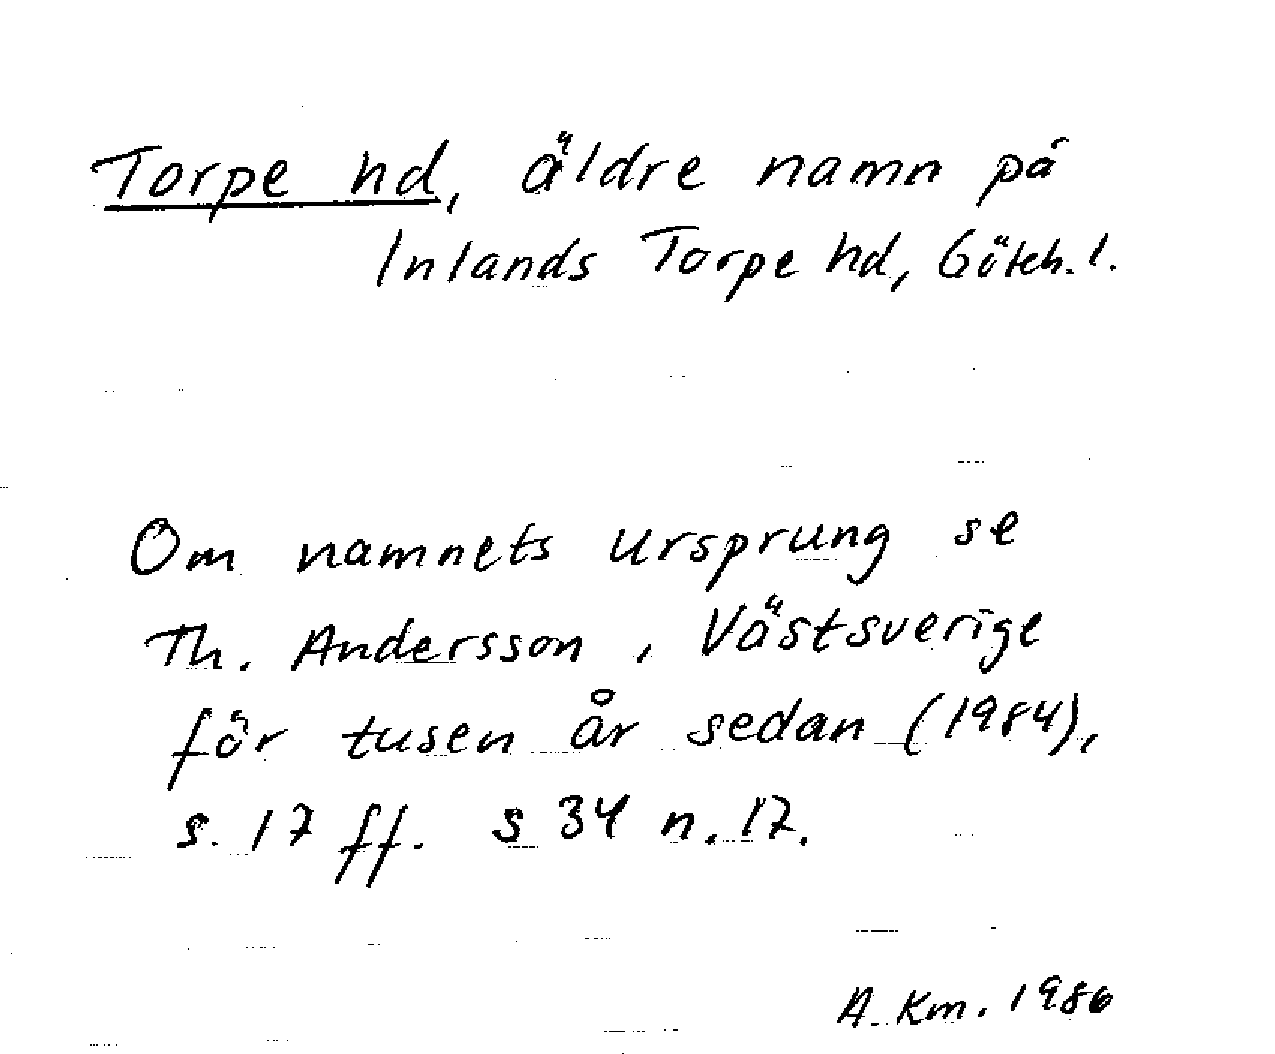 Torpe hd, äldre namn på
Inlands Torpe hd, Göteb. l.
Om namnets ursprung se
Th. Andersson, Västsverige
för tusen år sedan (1984),
s. 17 ff. s 34 n. 17.
A. Km. 1986